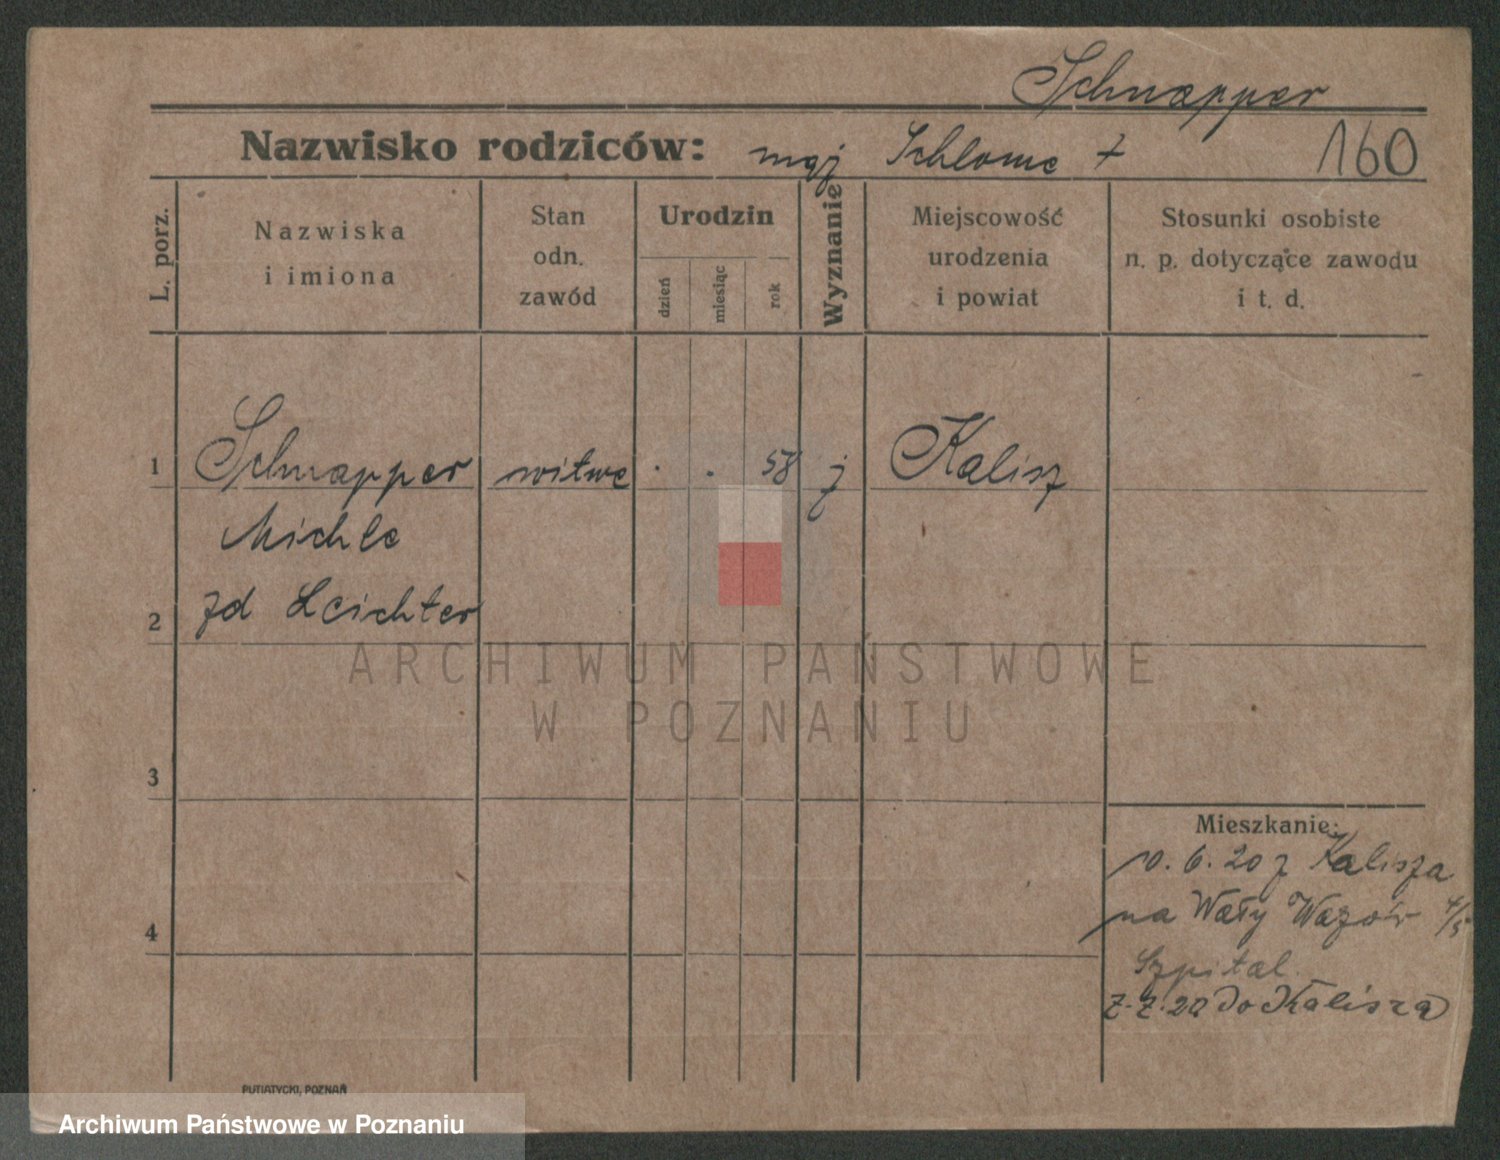 Schnapper
Nazwisko rodziców: mąż Schlome +
160
L. porz.
Nazwiska
i imiona
Stan
odn.
zawód
Urodzin
dzień
miesiąc
rok
Wyznanie
Miejscowość
urodzenia
i powiat
Stosunki osobiste
n. p. dotyczące zawodu
i t. d.
1
Schnapper witwe . . 58 j Kalisz
Michle
2
zd Leichter
3
4
Mieszkanie:
10. 6. 20 z Kalisza
na Wały Wazów 4/5
Szpital.
2.7.20 do Kalisza
PUTIATYCKI, POZNAŃ
ARCHIWUM PAŃSTWOWE
W POZNANIU
Archiwum Państwowe w Poznaniu